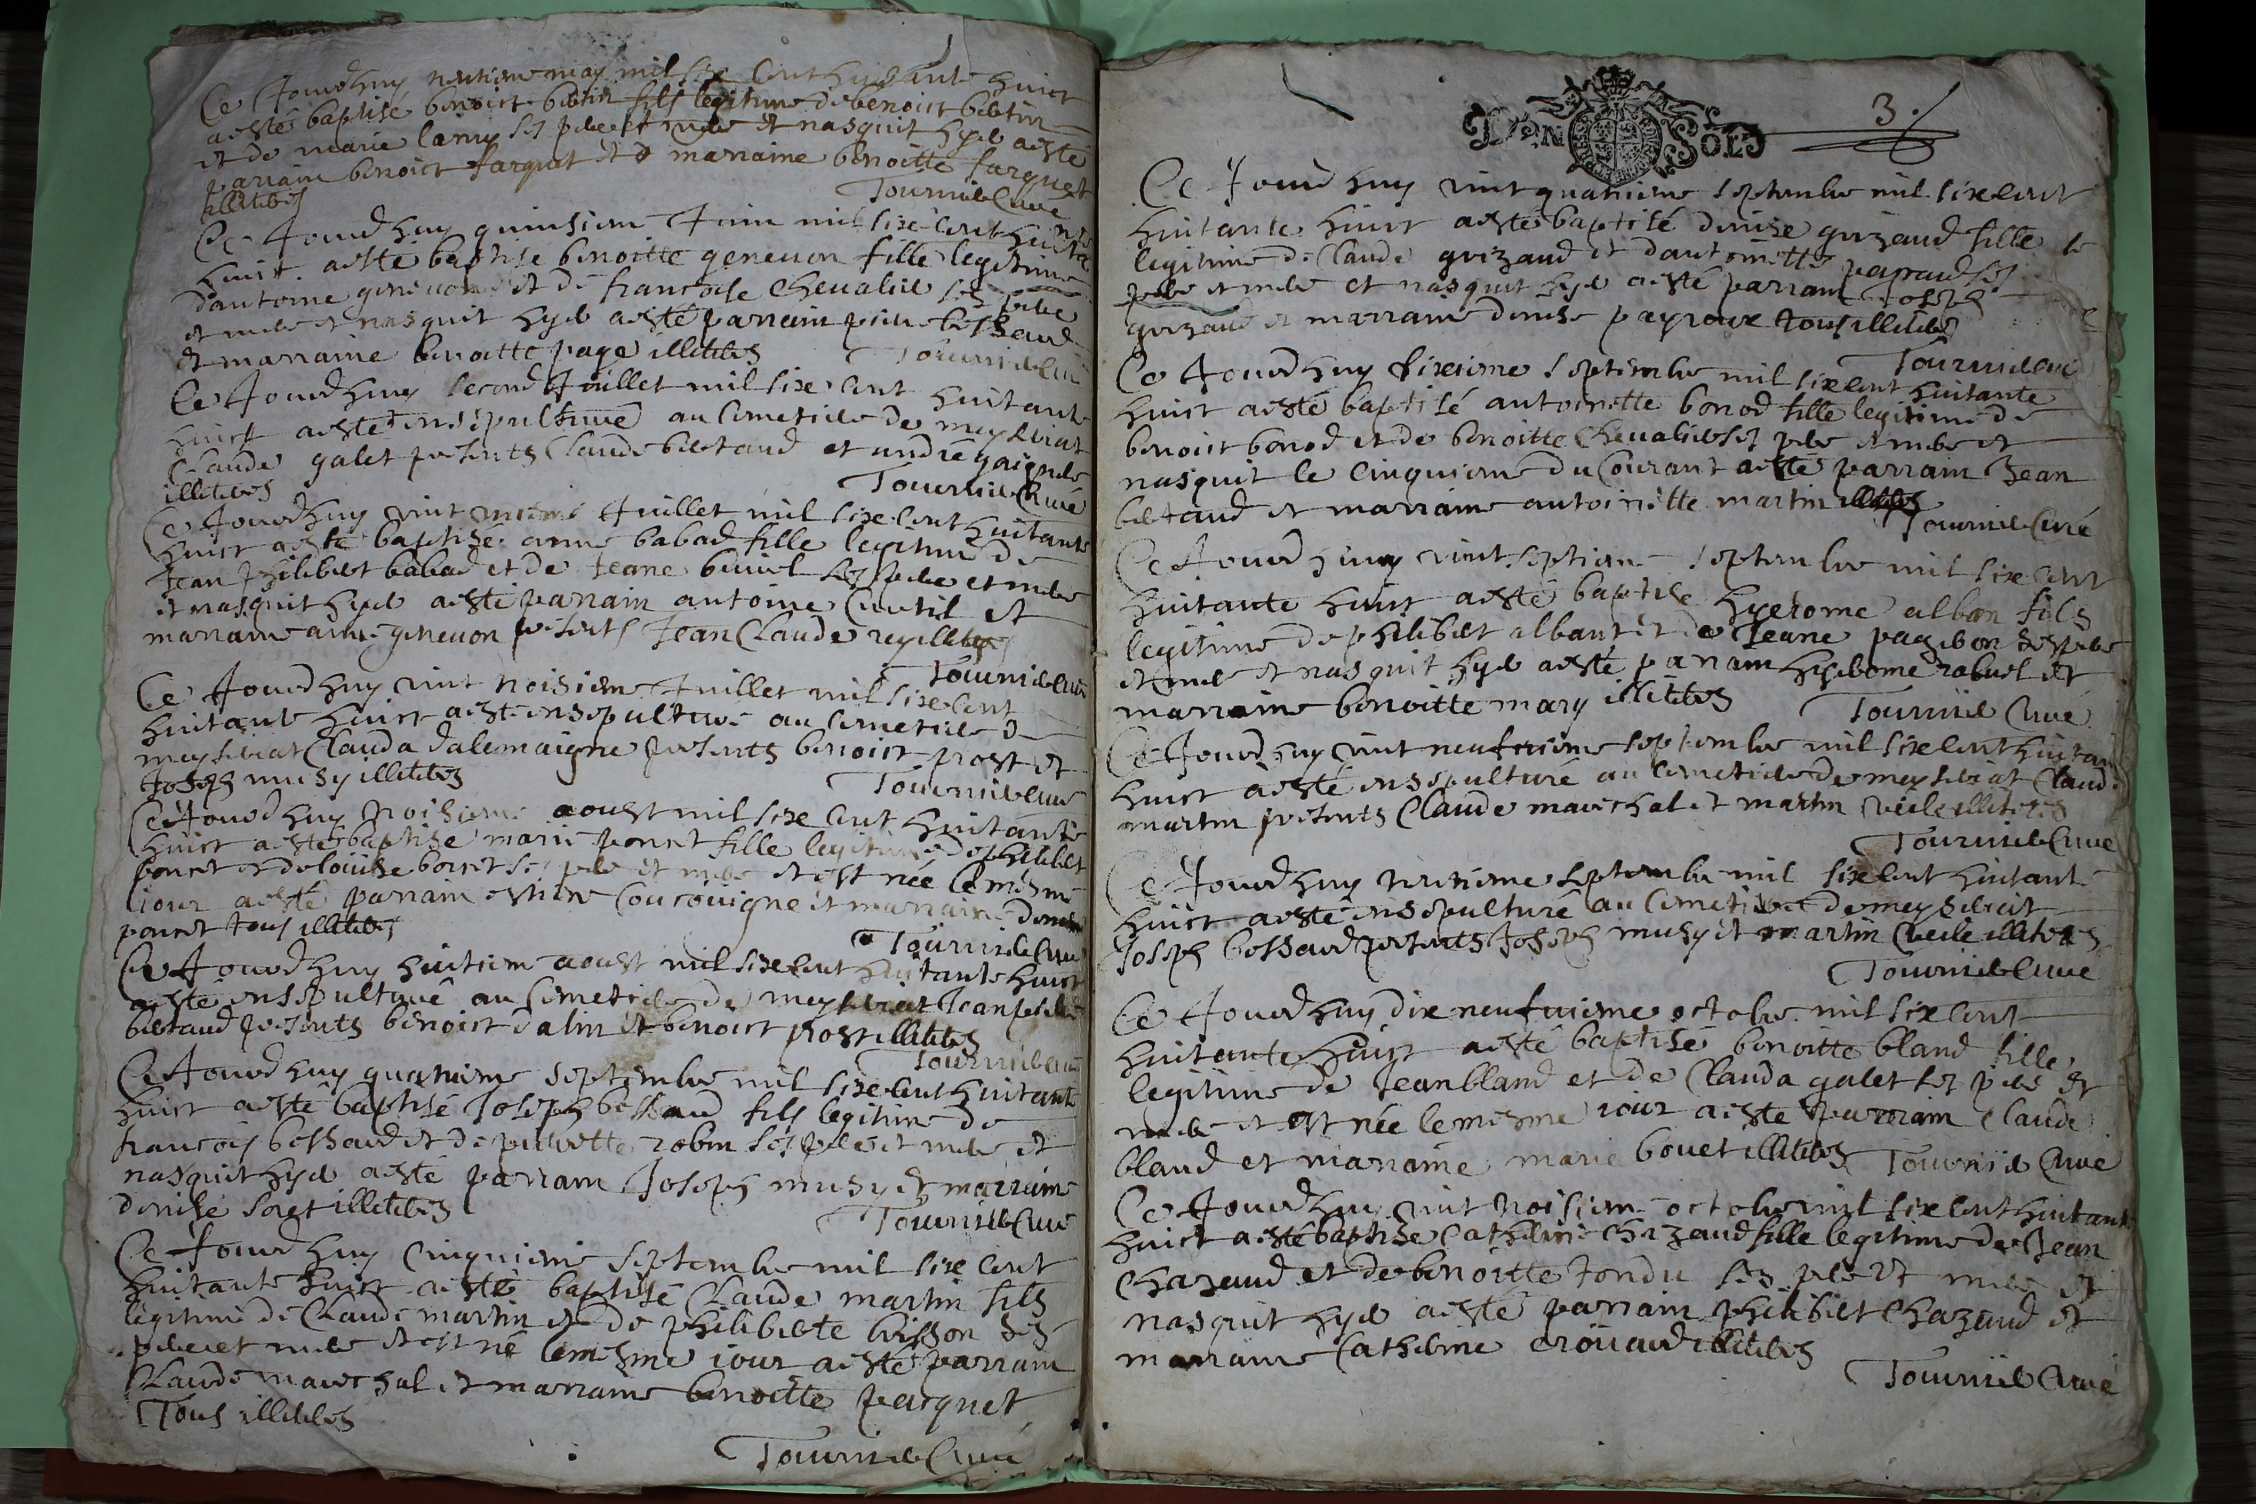 Ce Jourdhuy trentieme may mil six cent huictante huict
a esté baptisé benoict bertin fils legitime de benoict bertin
et de marie lamy ses pere et mere et nasquit hyer a esté
parrain benoict farguet et marraine benoitte farguet
illiteres
Tournier Curé
Ce Jourdhuy quinsiem Juin mil six cent huitante
huict a esté baptise benoitte genevon fille legitime
dantoine genevon et de francoise chevalier ses pere
et mere et nasquit hyer a esté parrain pierre bessaud
et marraine benoitte page illiteres Tournier Curé
Ce Jourdhuy second Juillet mil six cent huitante
huict a esté ensepulturé au cemetiere de meyseriat
Claude galet presents Claude bertaud et andré
illiteres
Tournier Curé
Ce Jourdhuy vint Juillet mil six cent huitante
huict a esté baptisée anne babad fille legitime de
Jean philibert babad et de Jeane ses pere et mere
et nasquit hyer a esté parrain antoine Curtil et
marraine anne genevon presents Jean Claude rey illiteres
Tournier Curé
Ce Jourdhuy vint troisiem Juillet mil six cent
huitante huict a esté ensepulturé au cemetiere de
meyseriat Clauda dalemaigne presents benoict prost et
Joseph musy illiteres
Tournier Curé
Ce Jourdhuy troisieme aoust mil six cent huitante
huict a esté baptisé marie poncet fille legitime de philibert
poncet et de louise ses pere et mere et est née le mesme
jour a esté parrain estiene et marraine denise
poncet tous illiteres
Tournier Curé
Ce Jourdhuy huitiem aoust mil six cent huitante huict
a esté ensepulturé au cemetiere de meyseriat Jean
bertaud presents benoict dalin et benoict prost illiteres
Tournier Curé
Ce Jourdhuy quatrieme septembre mil six cent huitante
huict a esté baptisé Joseph bessaud fils legitime de
francois bessaud et de pierrette robin ses pere et mere et
nasquit hyer a esté parrain Joseph musy et marraine
denise soret illiteres
Tournier Curé
Ce Jourdhuy cinquieme septembre mil six cent
huitante huict a esté baptisé Claude martin fils
legitime de Claude martin et de philiberte brisson ses
pere et mere et est né le mesme jour a esté parrain
Claude mareschal et marraine benoitte parquet
Tous illiteres
Tournier Curé
DEN SOLS
3.
Ce Jourdhuy vint quatrieme septembre mil six cent
huitante huict a esté baptisé denise goizaud fille
legitime de Claude goizaud et dantoinette papaud ses
pere et mere et nasquit hyer a esté parrain Joseph
goizaud et marraine denise payroux tous illiteres
Tournier Curé
Ce Jourdhuy sixieme septembre mil six cent huitante
huict a esté baptisé antoinette bonod fille legitime de
benoict bonod et de benoitte chevalier ses pere et mere et
nasquit le cinquieme du courant a esté parrain Jean
bertaud et marraine antoinette martin illiteres
Tournier Curé
Ce Jourdhuy vint septiem septembre mil six cent
huitante huict a esté baptisé hyerome alban fils
legitime de philibert alban et de Jeane pagebon ses pere
et mere et nasquit hyer a esté parrain hyerome rabuel et
marraine benoitte mary illiteres Tournier Curé
Ce Jourdhuy vint neufvieme septembre mil six cent huitante
huict a esté ensepulturé au cemetiere de meyseriat Claude
martin presents Claude mareschal et martin illiteres
Tournier Curé
Ce Jourdhuy trentieme septembre mil six cent huitante
huict a esté ensepulturé au cemetiere de meyseriat
Joseph bessaud presents Joseph musy et martin illiteres
Tournier Curé
Ce Jourdhuy dix neufvieme octobre mil six cent
huitante huict a esté baptisé benoitte bland fille
legitime de Jean bland et de Clauda galet ses pere et
mere et est née le mesme jour a esté parrain Claude
bland et marraine marie bouet illiteres Tournier Curé
Ce Jourdhuy vint troisiem octobre mil six cent huitante
huict a esté baptisé Catherine chazaud fille legitime de Jean
chazaud et de benoitte tondu ses pere et mere et
nasquit hyer a esté parrain philibert chazaud et
marraine Catherine illiteres
Tournier Curé